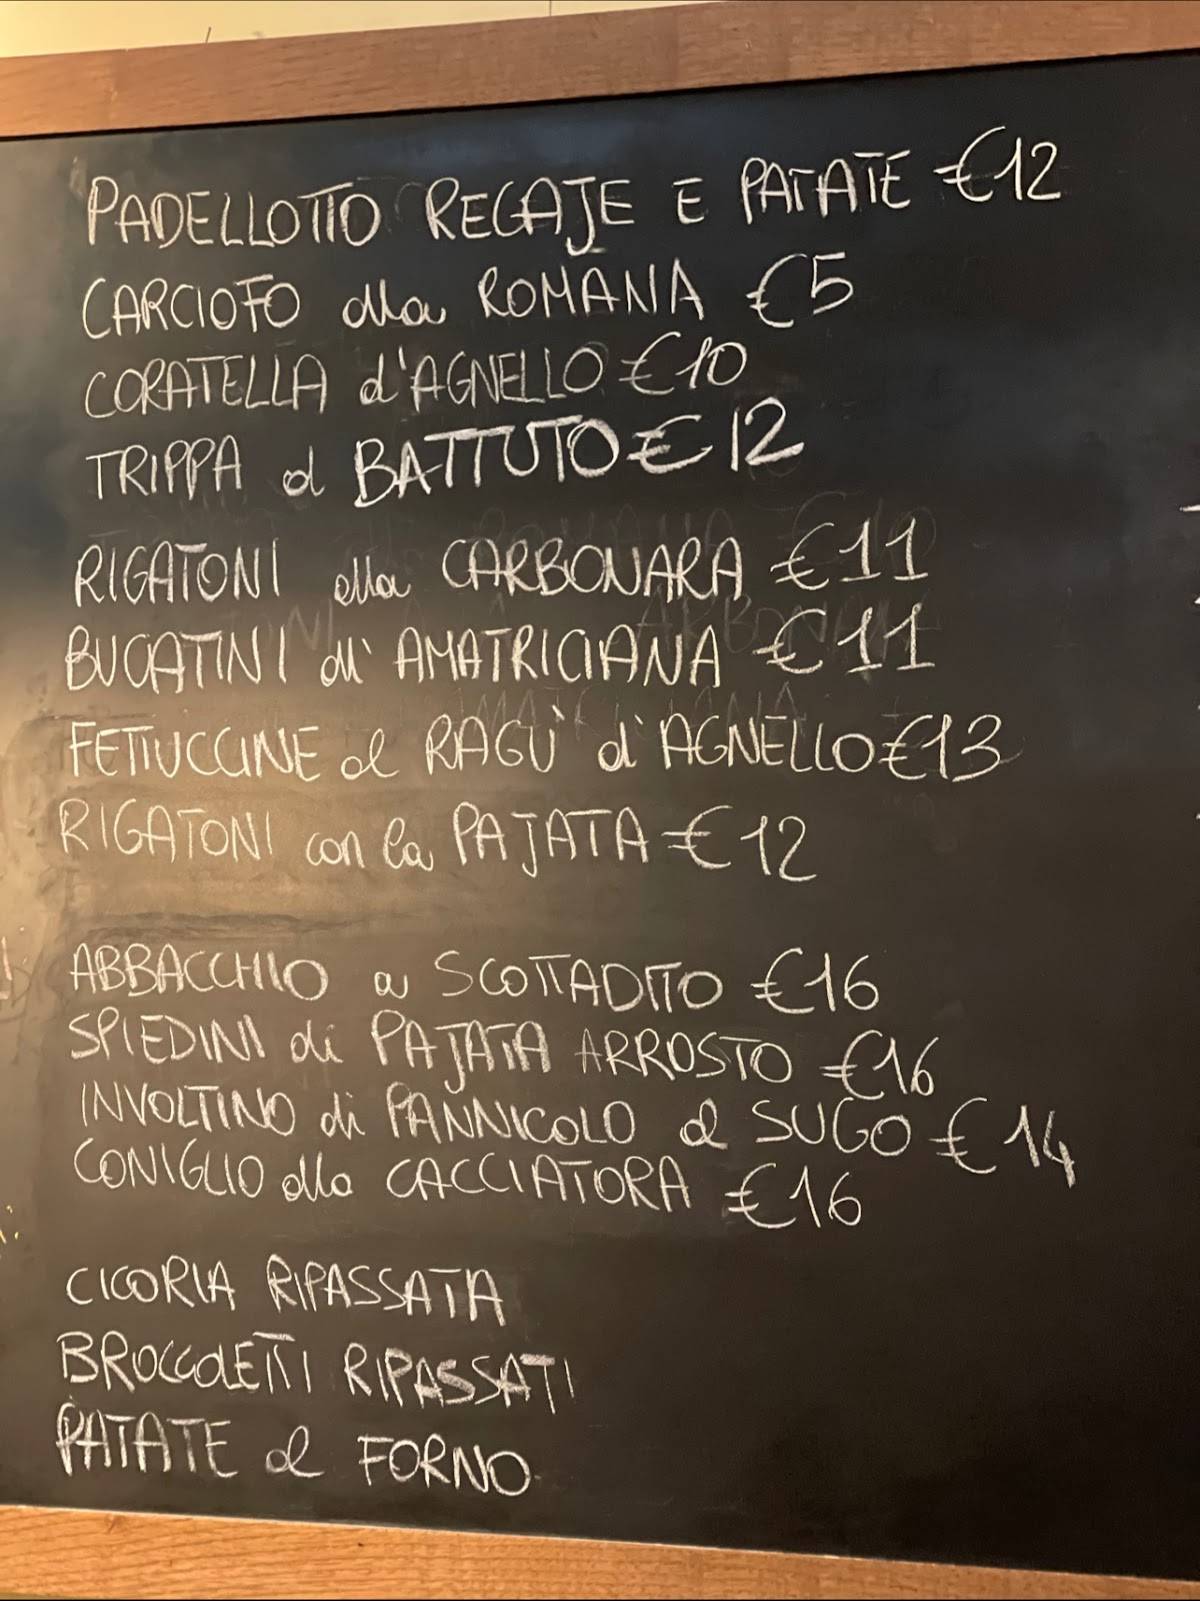 PADELLOTTO REGAJE E PATATE €12
CARCIOFO alla ROMANA €5
CORATELLA d'AGNELLO €10
TRIPPA al BATTUTO €12
RIGATONI alla CARBONARA €11
BUCATINI all' AMATRICIANA €11
FETTUCCINE al RAGÙ d'AGNELLO €13
RIGATONI con la PAJATA €12
ABBACCHIO a SCOTTADITO €16
SPIEDINI di PAJATA ARROSTO €16
INVOLTINO di PANNICOLO al SUGO €14
CONIGLIO alla CACCIATORA €16
CICORIA RIPASSATA
BROCCOLETTI RIPASSATI
PATATE al FORNO